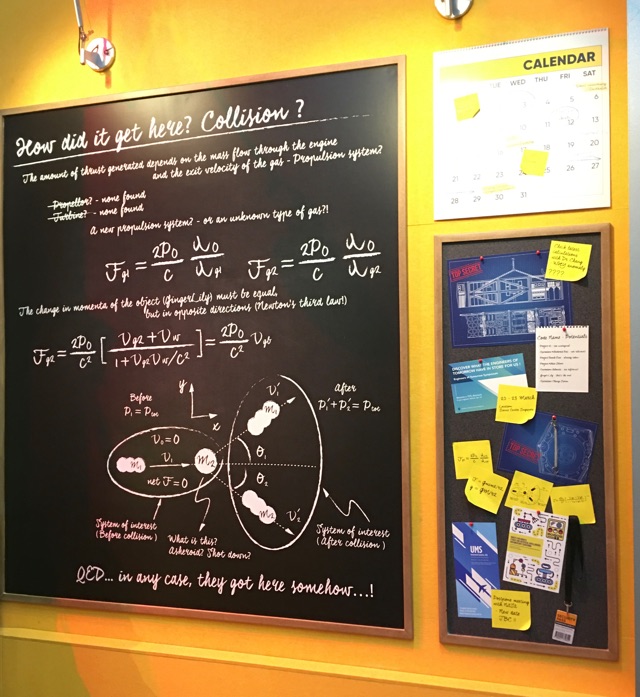 How did it get here? Collision?
The amount of thrust generated depends on the mass flow through the engine
and the exit velocity of the gas - Propulsion system?
Propellor? - none found
Turbine? - none found
A new propulsion system? - or an unknown type of gas?!
F_g1 = 2P_0/c υ_0/υ_g1 F_g2 = 2P_0/c υ_0/υ_g2
The change in momenta of the object (GingerLily) must be equal,
but in opposite directions (Newton's third law!)
F_g2 = 2P_0/c² [ υ_g2 + υ_w / 1 + υ_g2 υ_w/c² ] = 2P_0/c² υ_g6
Before
P_1 = P_tot
y
x
After
P_1' + P_2' = P_tot
υ_1'
m_1
υ_0 = 0
υ_1
m_1
m_2
net F = 0
θ_1
θ_2
m_2
υ_2'
System of interest
(Before collision)
What is this?
Asteroid? Shot down?
System of interest
(After collision)
QED... in any case, they got here somehow...!
CALENDAR
TUE WED THU FRI SAT
3 4 5 6
12 13
20
25 26 27
21 22 23 24
28 29 30 31
TOP SECRET
????
Code Name - Botanicals
DISCOVER WHAT THE ENGINEERS OF
TOMORROW HAVE IN STORE FOR US!
22 - 25 March
TOP SECRET
UMS
with NASA
New data